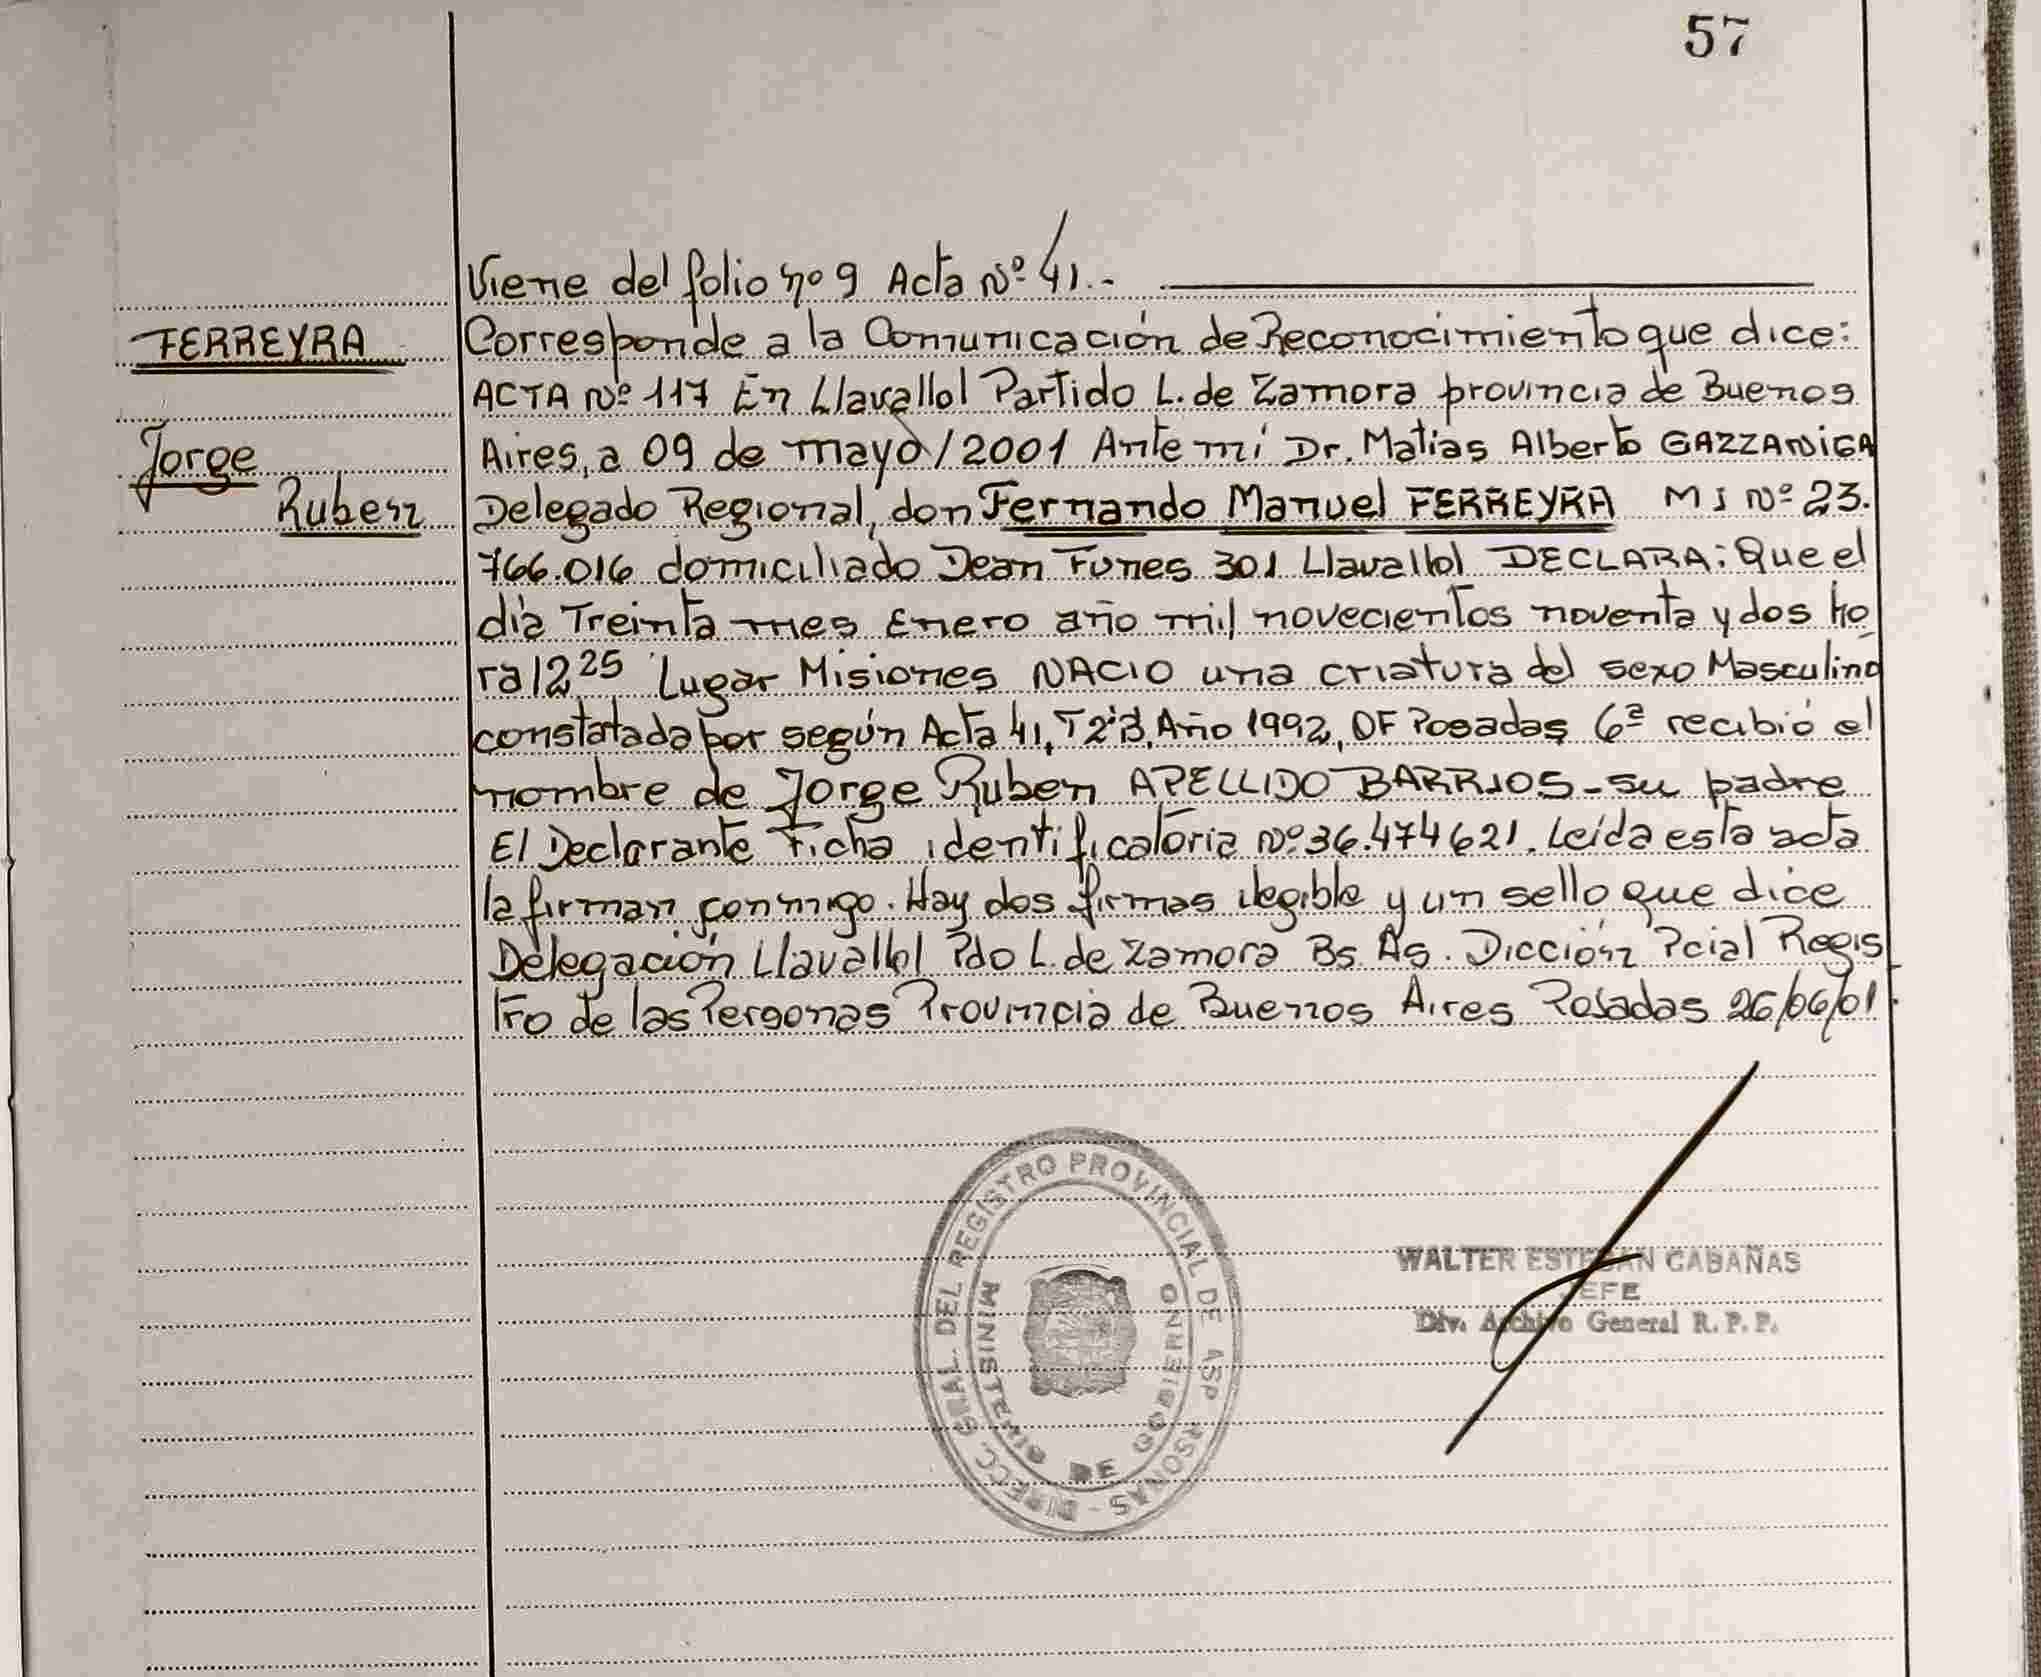 57
Viene del folio nº 9 Acta Nº 41.-
FERREYRA
Corresponde a la Comunicación de Reconocimiento que dice:
ACTA Nº 117 En Llavallol Partido L. de Zamora provincia de Buenos
Jorge
Aires, a 09 de mayo/2001 Ante mi Dr. Matias Alberto GAZZANIGA
Ruben
Delegado Regional, don Fernando Manuel FERREYRA MI Nº 23.
766.016 domiciliado Dean Funes 301 Llavallol DECLARA: Que el
día Treinta mes Enero año mil novecientos noventa y dos ho
ra 12 25 Lugar Misiones NACIO una criatura del sexo Masculino
constatada por según Acta 41, T 2ºB, Año 1992, OF Posadas 6ª recibió el
nombre de Jorge Ruben APELLIDO BARRIOS - su padre
El Declarante Ficha identificatoria Nº 36.474621. Leída esta acta
la firman conmigo. Hay dos firmas ilegible y un sello que dice
Delegación Llavallol Pdo L. de Zamora Bs. As. Dicción Pcial Regis
tro de las Personas Provincia de Buenos Aires Posadas 26/06/01.
DIRECC. GRAL. DEL REGISTRO PROVINCIAL DE ASP RSONAS -
MINISTERIO DE GOBIERNO
WALTER ESTEBAN CABAÑAS
JEFE
Div. Archivo General R. P. P.